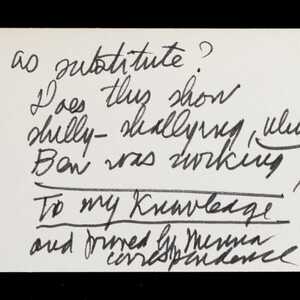 as substitute?
Does this show
shilly-shallying,
Ben was working,
To my Knowledge
and proved by
correspondence